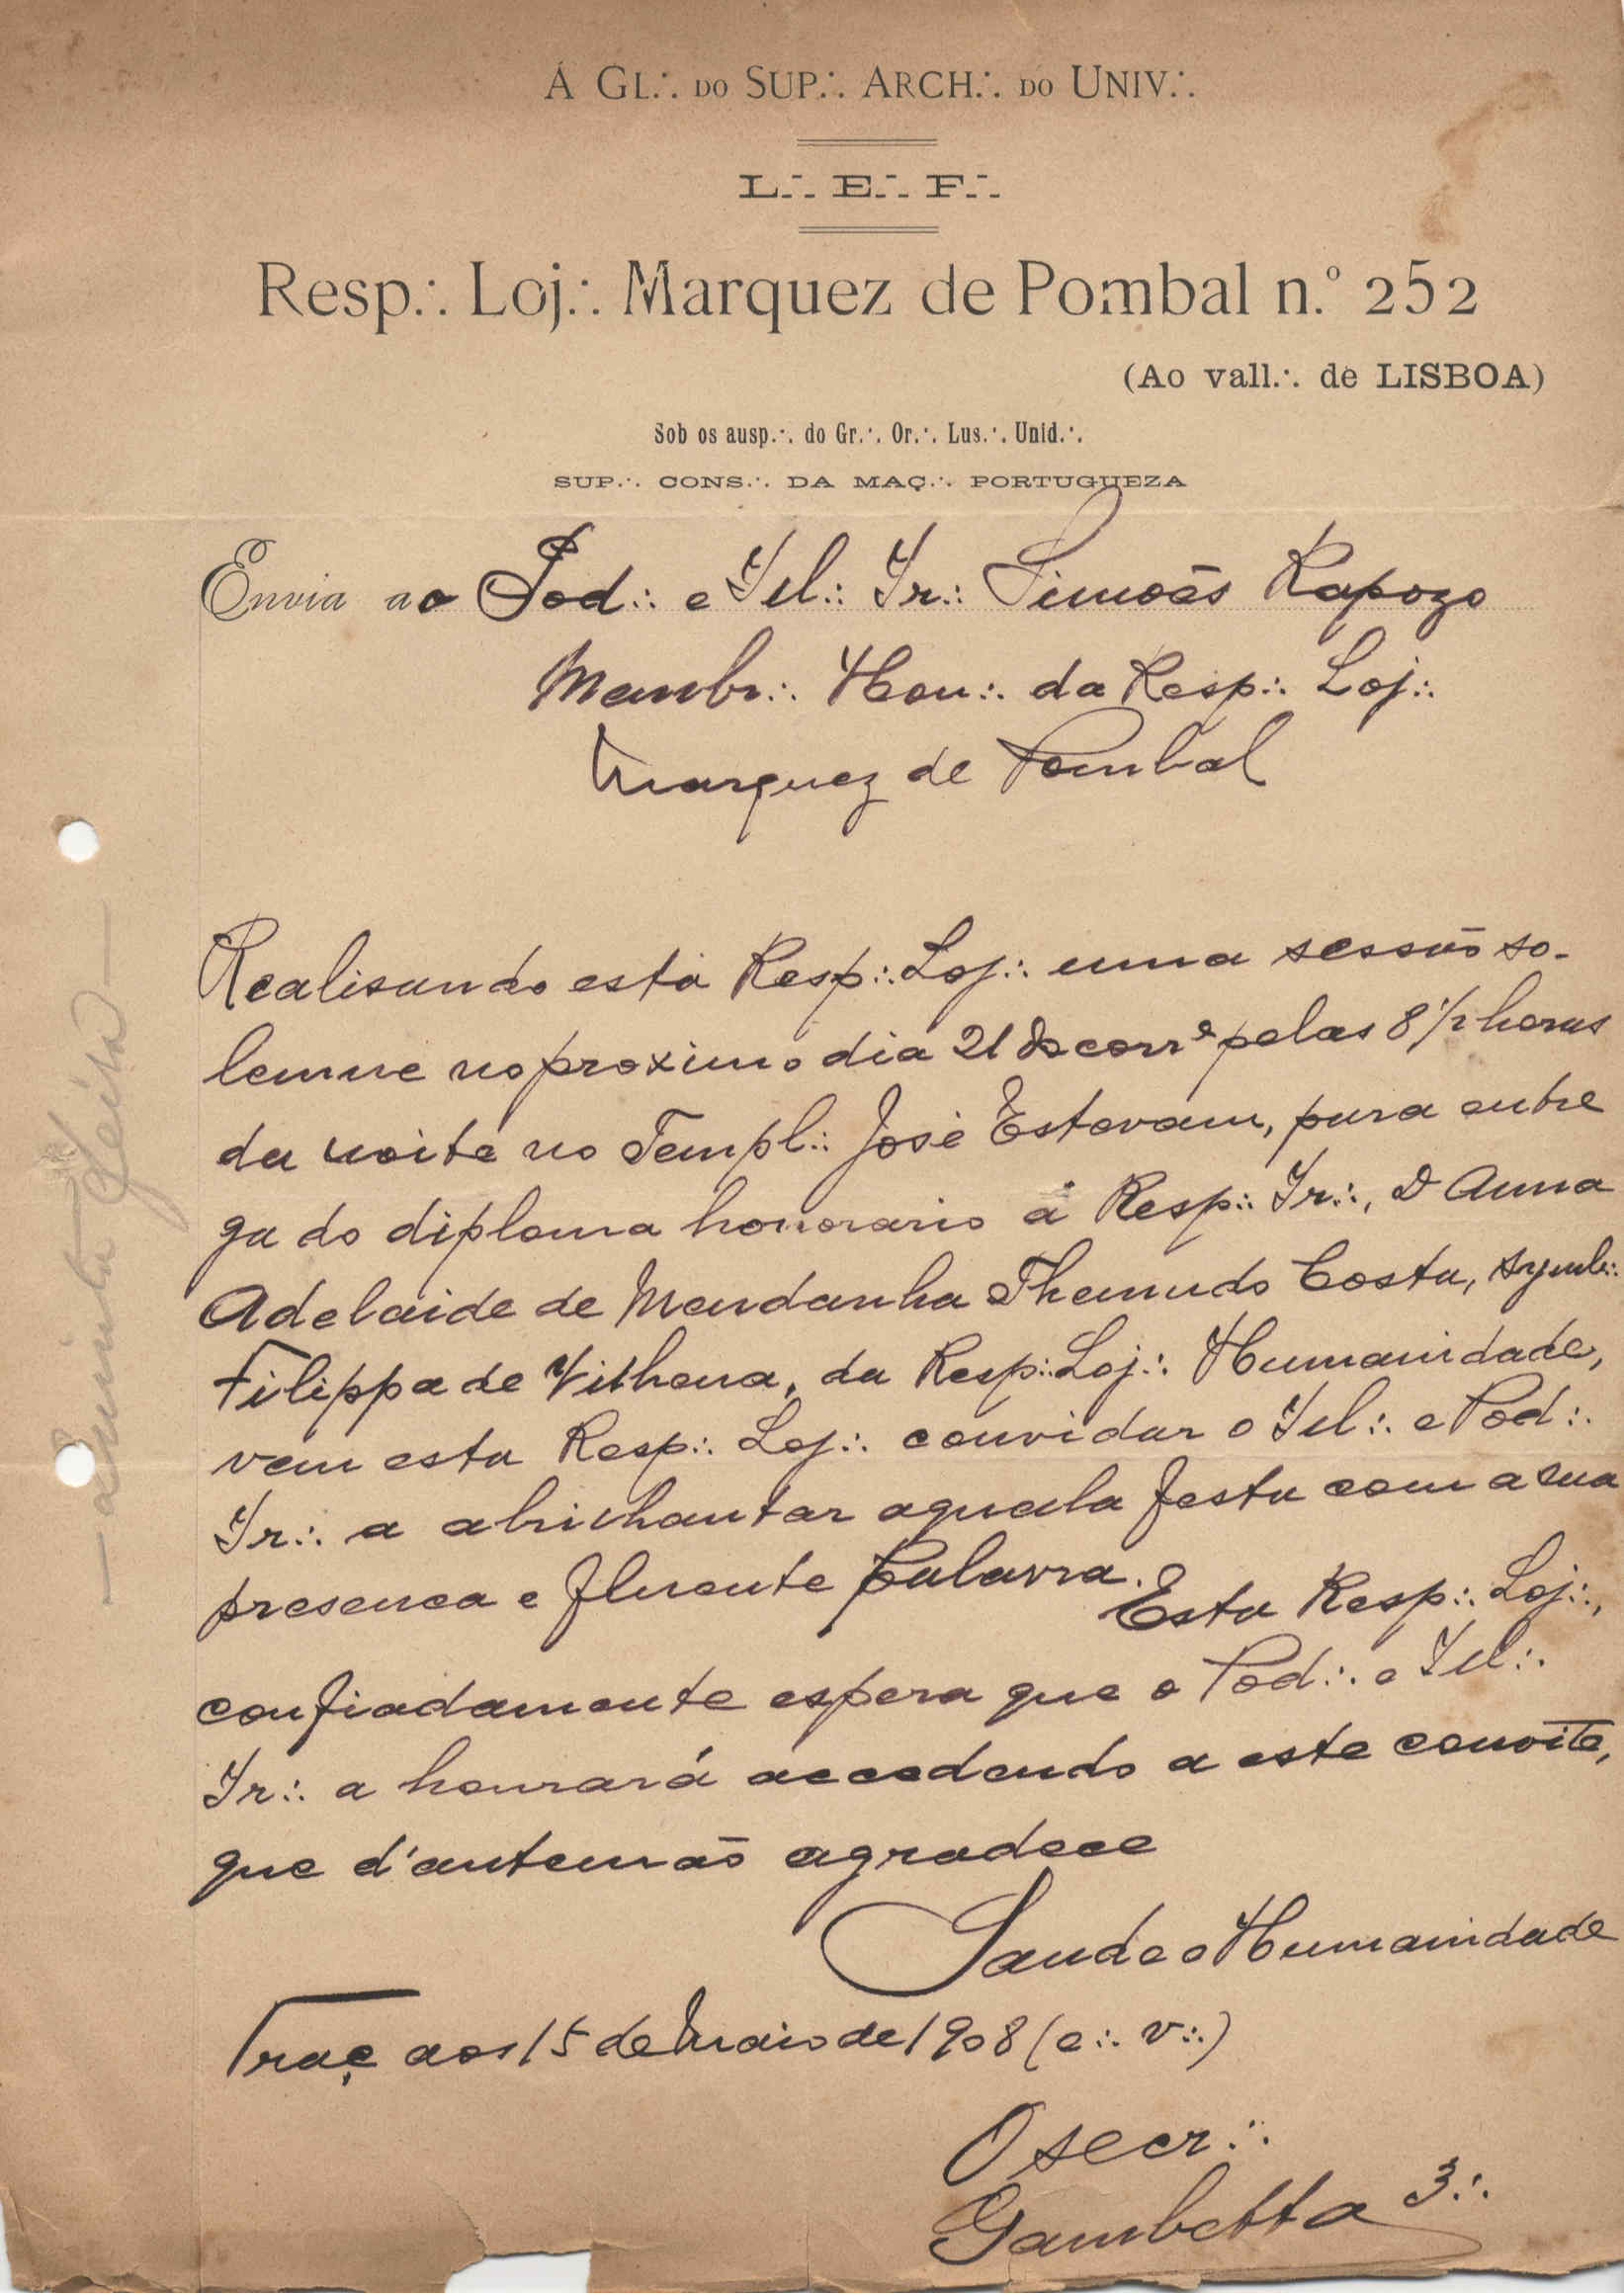 Á GL.·. DO SUP.·. ARCH.·. DO UNIV.·.
L.·. E.·. F.·.
Resp.·. Loj.·. Marquez de Pombal n.º 252
(Ao vall.·. de LISBOA)
Sob os ausp.·. do Gr.·. Or.·. Lus.·. Unid.·.
SUP.·. CONS.·. DA MAÇ.·. PORTUGUEZA
Envia ao Pod.·. e Ill.·. Ir.·. Simões Rapozo
Membr.·. Hon.·. da Resp.·. Loj.·.
Marquez de Pombal
Realisando esta Resp.·. Loj.·. uma sessão so-
lemne no proximo dia 21 do corrᵉ pelas 8 1/2 horas
da noite no Templ.·. José Estevam, para entre
ga do diploma honorario á Resp.·. Ir.·., D Anna
Adelaide de Mendanha Themudo Costa, symb.·.
Filippa de Vilhena, da Resp.·. Loj.·. Humanidade,
vem esta Resp.·. Loj.·. convidar o Ill.·. e Pod.·.
Ir.·. a abrilhantar aquela festa com a sua
presenca e fluente Palavra. Esta Resp.·. Loj.·.,
confiadamente espera que o Pod.·. e Ill.·.
Ir.·. a honrará accedendo a este convite,
que d'antemão agradece
Saude e Humanidade
Traç aos 15 de Maio de 1908 (e.·. v.·.)
O secr.·.
Gambetta 3.·.